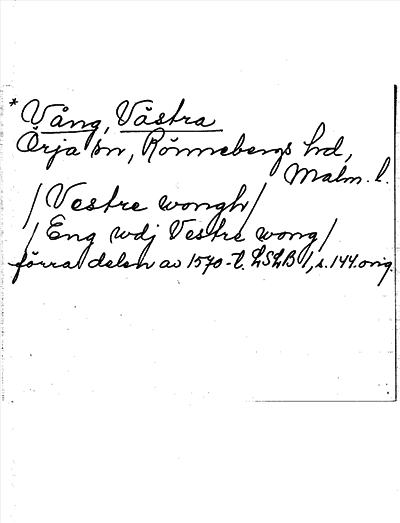 * Vång, Västra
Örja sn, Rönnebergs hd,
Malm. l.
/ Vestre wongh /
/ Eng wdj Vestre wong /
förra delen av 1570-t. LSLB 1, s. 144 orig.